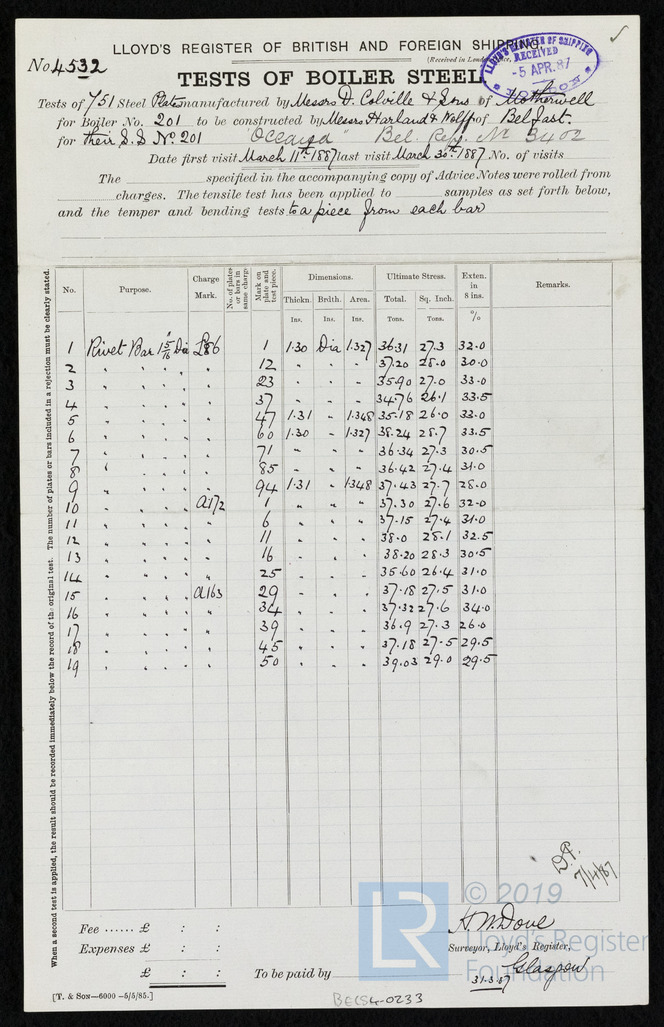 No 4532
LLOYD'S REGISTER OF BRITISH AND FOREIGN SHIPPING.
TESTS OF BOILER STEEL.
LLOYD'S REGISTER OF SHIPPING
RECEIVED
-5 APR. 87
LONDON
Tests of 751 Steel Plates manufactured by Messrs D. Colville & Sons of Motherwell
for Boiler No. 201 to be constructed by Messrs Harland & Wolff of Belfast.
for their S.S No. 201 "Oceana" Bel. Rep. No 3402
Date first visit March 11th 1887 last visit March 30th 1887. No. of visits
The specified in the accompanying copy of Advice Notes were rolled from
charges. The tensile test has been applied to samples as set forth below,
and the temper and bending tests to a piece from each bar
When a second test is applied, the result should be recorded immediately below the record of the original test. The number of plates or bars included in a rejection must be clearly stated.
No. Purpose. Charge Mark. No. of plates or bars in same charge Mark on plate and test piece. Dimensions. Ultimate Stress. Exten. in 8 ins. Remarks.
Thickn. Brdth. Area. Total. Sq. Inch.
Ins. Ins. Ins. Tons. Tons. %
1 Rivet Bar 1 5/16 Dia 1 1.30 Dia 1.327 36.31 27.3 32.0
2 " " " " " 12 " " " 37.20 28.0 30.0
3 " " " " " 23 " " " 35.90 27.0 33.0
4 " " " " " 37 " " " 34.76 26.1 33.5
5 " " " " " 47 1.31 " 1.348 35.18 26.0 33.0
6 " " " " " 60 1.30 " 1.327 38.24 28.7 33.5
7 " " " " " 71 " " " 36.34 27.3 30.5
8 " " " " " 85 " " " 36.42 27.4 31.0
9 " " " " " 94 1.31 " 1.348 37.43 27.7 28.0
10 " " " " a172 1 " " " 37.30 27.6 32.0
11 " " " " " 6 " " " 37.15 27.4 31.0
12 " " " " " 11 " " " 38.0 28.1 32.5
13 " " " " " 16 " " " 38.20 28.3 30.5
14 " " " " " 25 " " " 35.60 26.4 31.0
15 " " " " a163 29 " " " 37.18 27.5 31.0
16 " " " " " 34 " " " 37.32 27.6 34.0
17 " " " " " 39 " " " 36.9 27.3 26.0
18 " " " " " 45 " " " 37.18 27.5 29.5
19 " " " " " 50 " " " 39.03 29.0 29.5
7/4/87
Fee ...... £ : :
Expenses £ : :
£ : :
To be paid by
H. W. Dove
Surveyor, Lloyd's Register,
Glasgow
31.3.87
[T. & SON—6000 —5/5/85.]
BECS4-0233
LR
© 2019
Lloyd's Register
Foundation